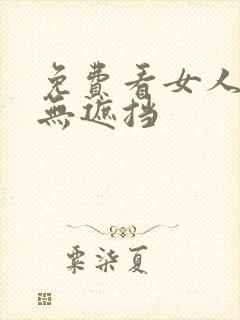 免费看女人
無遮挡
粟柒夏